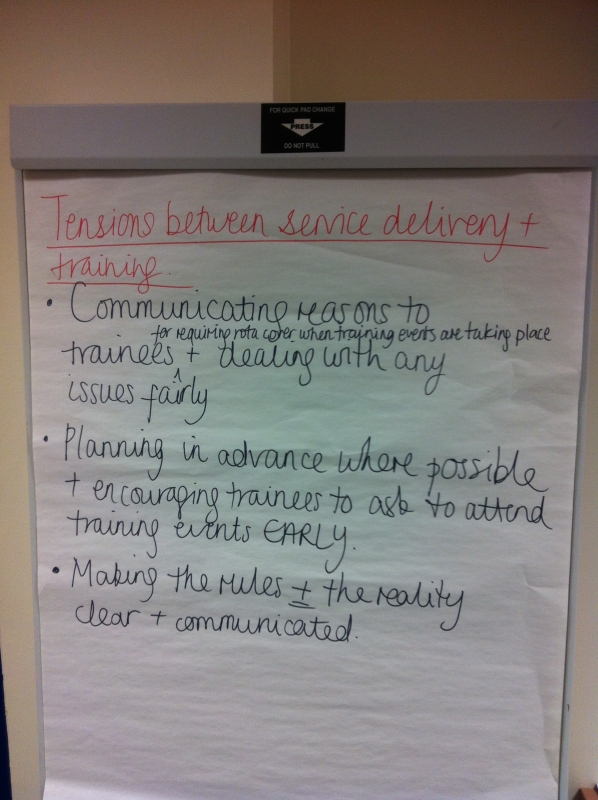 FOR QUICK PAD CHANGE
PRESS
DO NOT PULL
Tensions between service delivery +
training.
• Communicating reasons to
for requiring rota cover when training events are taking place
trainees + dealing with any
issues fairly
• Planning in advance where possible
+ encouraging trainees to ask to attend
training events EARLY.
• Making the rules + the reality
clear + communicated.